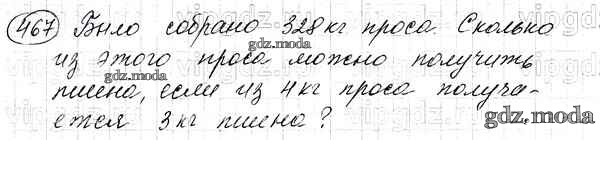 467 Было собрано 328 кг проса. Сколько
из этого проса можно получить
пшена, если из 4 кг проса получа-
ется 3 кг пшена?
gdz.moz
gdz.moz
gdz.moz
gdz.moz